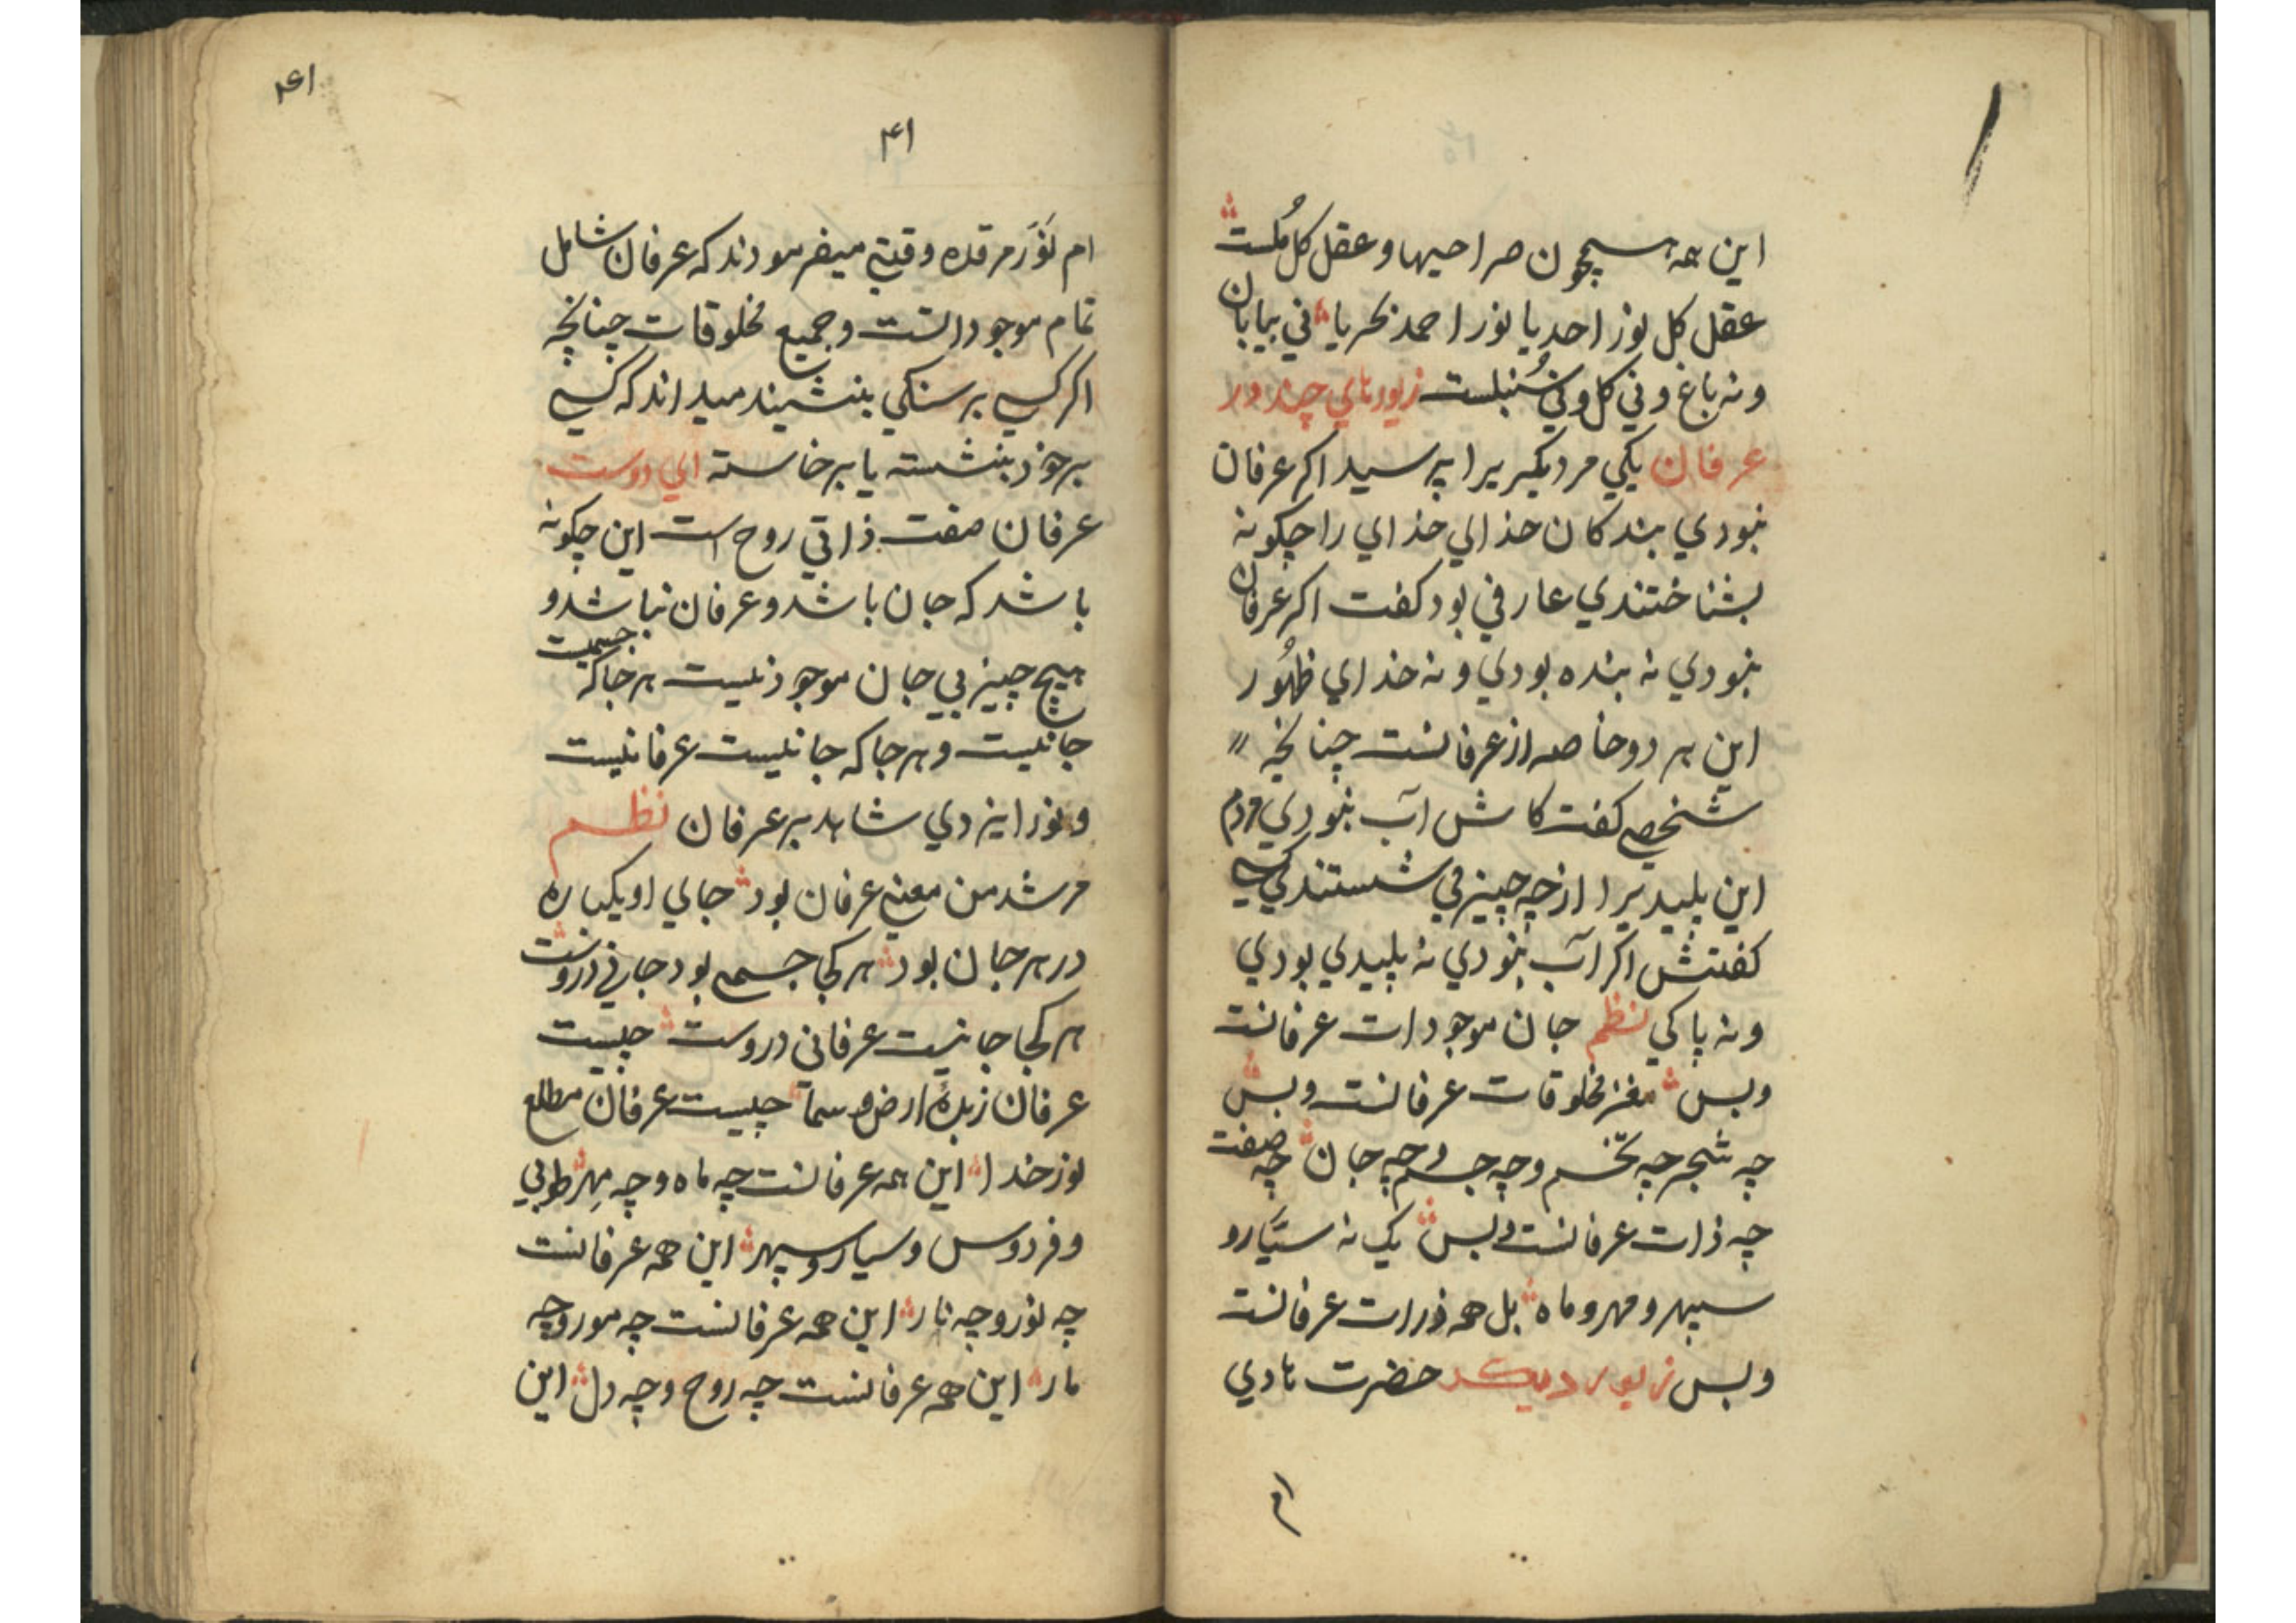 این همه همچون صراحیها و عقل کل مُلست
عقل کل نور احد یا نور احمد نکریا نی بیابان
و نه باغ و نی کل و نی سُنبلست زیورهاي چند در
عرفان یکي مر دیکریرا پرسید اکر عرفان
نبودي بندکان خداي خداي را چکونه
بشناختندي عارفي بود کفت اکر عرفان
نبودي نه بنده بودي و نه خداي ظهُور
این هر دو خاصه از عرفانست چنانچه
شخصي کفت کاش آب نبودي مردم
این پلیدیرا از چه چیز مي شستندي کسي
کفتش اکر آب نبودي نه پلیدي بودي
و نه پاکي نظم جان موجودات عرفانست
و بس مغز مخلوقات عرفانست و بس
چه شجر چه تخم و چه جسم و چه جان چه صفت
چه ذات عرفانست و بس یک نه سیّار و
سپهر و مهر و ماه بل همه ذرات عرفانست
و بس زیور دیکر حضرت هادي
۴۱
۴۱
۴۱
ام نوّر مرقده وقتي میفرمودند که عرفان شامل
تمام موجوداتست و جمیع مخلوقات چنانچه
اکر کسي بر سنکي بنشیند میداند که کسي
بر خود بنشسته یا برخاسته اي دوست
عرفان صفت ذاتي روح است این چکونه
باشد که جان باشد و عرفان نباشد و
هیچ چیز بي جان موجود نیست هر جا که جسمیست
جانیست و هر جا که جانیست عرفانیست
و نور ایزدي شاهد بر عرفان نظم
مرشد من معني عرفان بود جاي او یکباره
در هر جان بود هر کجا جسمي بود جاني دروست
هر کجا جانیست عرفانی دروست چیست
عرفان زبدهٔ ارض و سمآ چیست عرفان مطلع
نور خدا این همه عرفانست چه ماه و چه مهر طوبي
و فردوس و سیار و سپهر این همه عرفانست
چه نور و چه نار این همه عرفانست چه مور و چه
مار این همه عرفانست چه روح و چه دل این